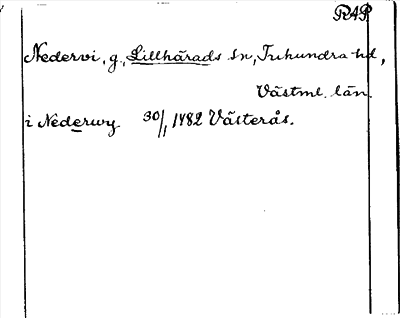 RAP
Nedervi, g., Lillhärads sn, Tuhundra hd,
Västml. län.
i Nederwy 30/1 1482 Västerås.